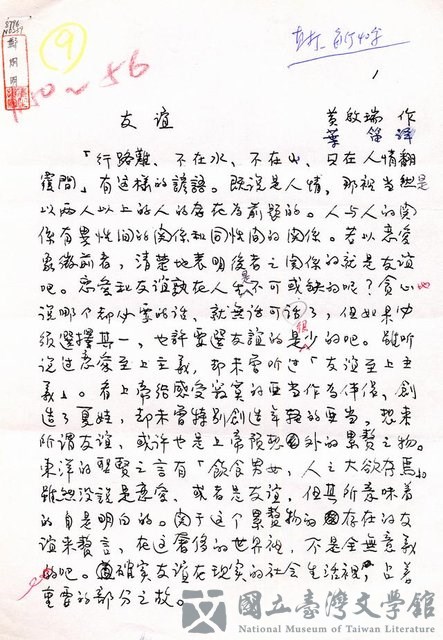 9
50~56
1
友誼
黃敏瑞 作
葉笛 譯
「行路難、不在水、不在山、只在人情翻
覆間」有這樣的諺語。既説是人情，那視当然是
以两人以上的人的存在為前題的。人与人的関
係有異性间的関係和同性间的関係。若以恋爱
象徵前者，清楚地表明後者之関係的就是友誼
吧。恋爱和友誼孰在人生是不可或缺的呢？貪心
说哪个却必要的話，就無話可说了，但如果必
級選擇其一，也許要選友誼的是很少的吧。雖听
说过恋爱至上主義，却未曾听过「友誼至上主
義」。看上帝给感受寂寞的亜当作為伴侣，創
造了夏娃，却未曾特别創造年轻的亜当，想来
所谓友誼，或许也是上帝預想外的累贅之物。
東洋的聖賢之言有「飲食男女，人之大欲存焉」，
雖然没説是恋爱、或者是友誼，但其所意味着
的自是明白的。関于这个累贅物的存在的友
誼来贅言，在这奢侈的世界裡，不是全無意義
的吧。確実友誼在現実的社会生活裡，占着
重要的部分之故。
國立臺灣文學館
National Museum of Taiwan Literature